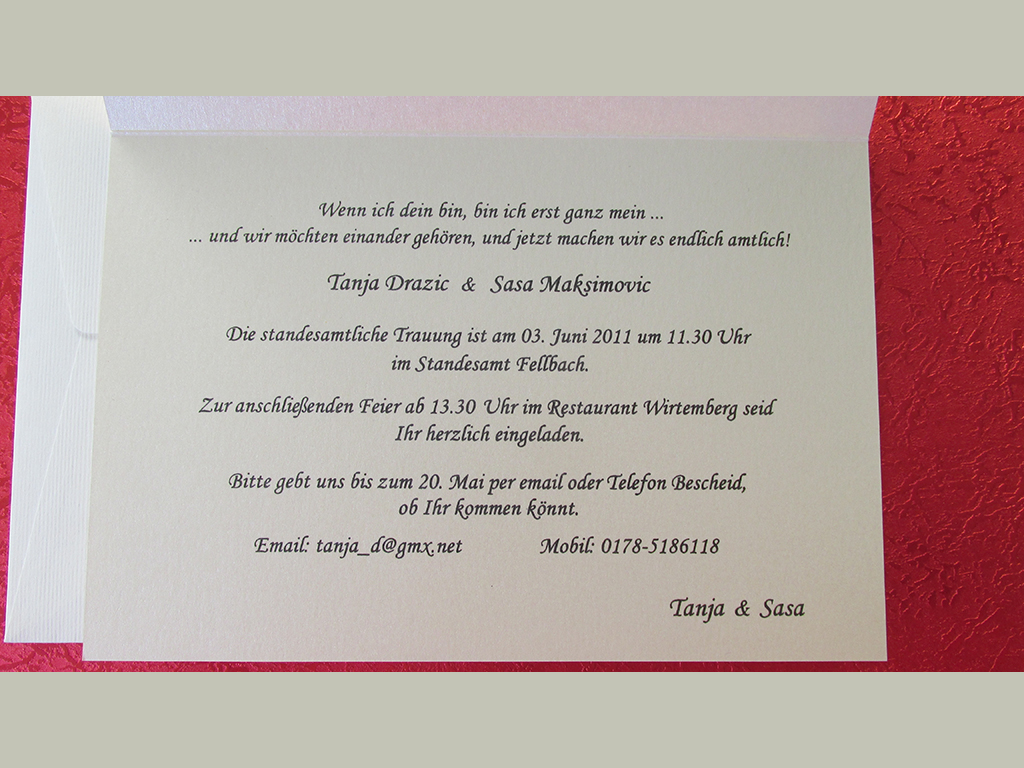 Wenn ich dein bin, bin ich erst ganz mein ...
... und wir möchten einander gehören, und jetzt machen wir es endlich amtlich!
Tanja Drazic & Sasa Maksimovic
Die standesamtliche Trauung ist am 03. Juni 2011 um 11.30 Uhr
im Standesamt Fellbach.
Zur anschließenden Feier ab 13.30 Uhr im Restaurant Wirtemberg seid
Ihr herzlich eingeladen.
Bitte gebt uns bis zum 20. Mai per email oder Telefon Bescheid,
ob Ihr kommen könnt.
Email: tanja_d@gmx.net Mobil: 0178-5186118
Tanja & Sasa